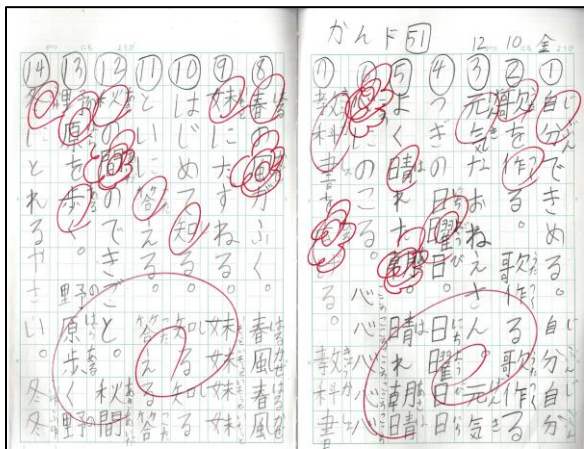 かんド51 12 10 金
① 自分できめる。 自分自分
② 歌を作る。 歌作る歌作る
③ 元気なおねえさん 元気
④ つぎの日曜日。 日曜日日
⑤ よく晴れた朝。 晴れ朝晴
のこる。 心心心
⑦ 教科書 る。 教科書
⑧ 春の風がふく。 春風春風
⑨ 妹にたずねる。 妹妹妹
⑩ はじめて知る。 知る知る
⑪ といに答える。 答える答
⑫ 秋の間のできごと。 秋間
⑬ 野原を歩く。 野原歩く野
⑭ 冬にとれるやさい。 冬冬